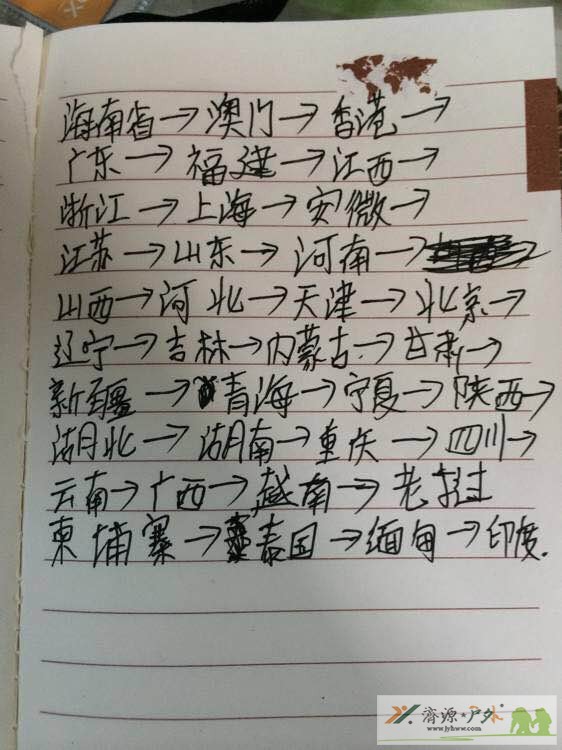 海南省→澳门→香港→
广东→福建→江西→
浙江→上海→安微→
江苏→山东→河南→
山西→河北→天津→北京→
辽宁→吉林→内蒙古→甘肃→
新疆→青海→宁夏→陕西→
湖北→湖南→重庆→四川→
云南→广西→越南→老挝
柬埔寨→泰国→缅甸→印度.
济源★户外
www.jyhww.com